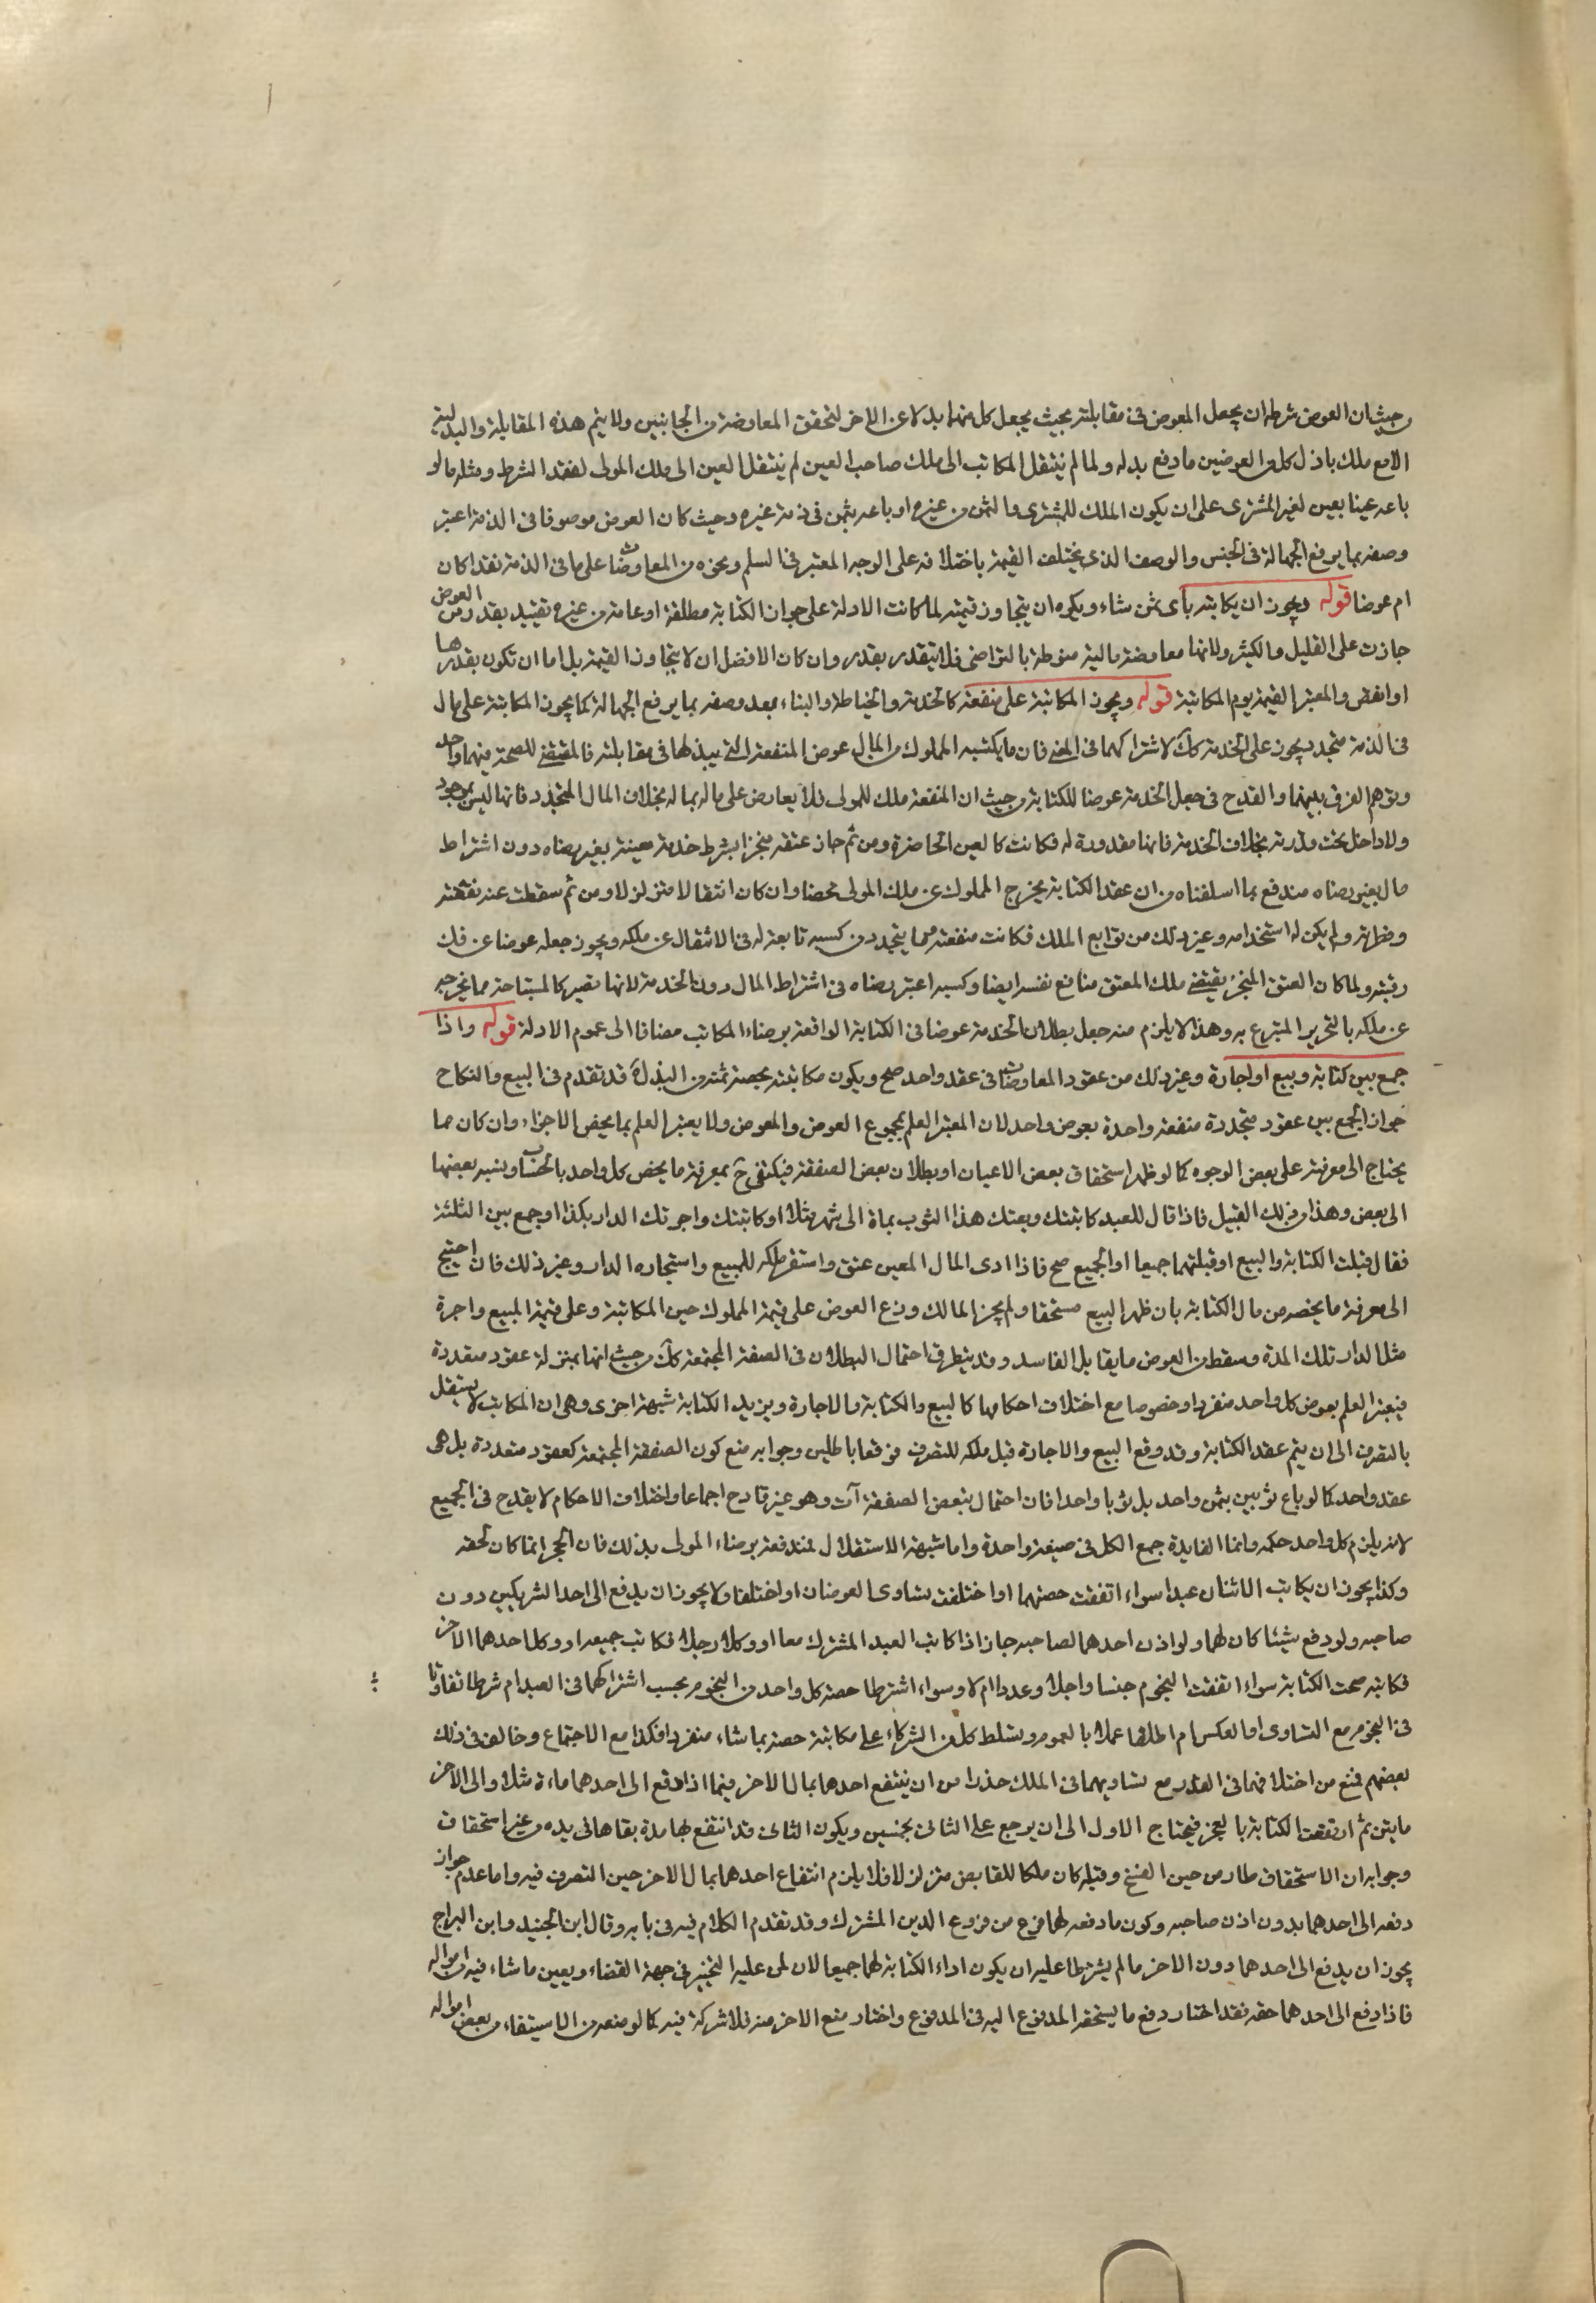 من حيث ان العوض شرطه ان يجعل المعوض فى مقابلته بحيث يجعل كل منهما بدلا عن الاخر لتحقق المعاوضة من الجانبين ولا يتم هذه المقابلة والبدلية
الا مع ملك باذل كل من العوضين ما دفع بدله ولما لم ينتقل المكاتب الى ملك صاحب العين لم ينتقل العين الى ملك المولى لفقد الشرط ومثله ما لو
باعه عينا بعين لغير المشترى على ان يكون الملك للمشترى والثمن من غيره او باعه بثمن فى ذمة غيره وحيث كان العوض موصوفا فى الذمة اعتبر
وصفه بما يرفع الجهالة فى الجنس والوصف الذى يختلف القيمة باختلافه على الوجه المعتبر فى السلم ونحوه من المعاوضات على ما فى الذمة نقدا كان
ام عوضا قوله ويجوز ان يكاتبه باى ثمن شاء ويكره ان يتجاوز قيمته لما كانت الادلة على جواز الكتابة مطلقة او عامة من غير تقييد بقدر من العوض
جازت على القليل والكثير ولانها معاوضة مالية منوطة بالتراضى فلا يتقدر بقدر وان كان الافضل ان لا يتجاوز القيمة بل اما ان تكون بقدرها
او انقص والمعتبر القيمة يوم المكاتبة قوله ويجوز المكاتبة على منفعة كالخدمة والخياطة والبناء بعد وصفه بما يرفع الجهالة كما يجوز المكاتبة على مال
فى الذمة متجدد يجوز على الخدمة كك لاشتراكهما فى المعنى فان ما يكتسبه المملوك من المال عوض المنفعة التى يبذلها فى مقابلته فالمقتضى للصحة فيهما واحد
وتوهم الفرق بينهما والقدح فى جعل الخدمة عوضا للكتابة من حيث ان المنفعة ملك للمولى فلا يعاوض على ماله بماله بخلاف المال المتجدد فانها ليس بموجود
ولا داخل تحت قدرته بخلاف الخدمة فانها مقدورة له فكانت كالعين الحاضرة ومن ثم جاز عتقه منجزا بشرط خدمة معينة بغير رضاه دون اشتراط
مال بغير رضاه مندفع بما اسلفناه من ان عقد الكتابة يخرج المملوك عن ملك المولى محضا وان كان انتقالا متزلزلا ومن ثم سقطت عنه نفقته
وفطرته ولم يكن له استخدامه وغير ذلك من توابع الملك فكانت منفعته مما يتجدد من كسبه تابعة له فى الانتقال عن ملكه ويجوز جعله عوضا عن فك
رقبته ولما كان العتق المنجز يقتضى ملك المعتق منافع نفسه ايضا وكسبه اعتبر رضاه فى اشتراط المال دون الخدمة لانها تصير كالمستباحة مما يخرجه
عن ملكه بالتحرير المتبرع به وهذا لا يلزم منه جعل بطلان الخدمة عوضا فى الكتابة الواقعة برضاء المكاتب مضافا الى عموم الادلة قوله واذا
جمع بين كتابة وبيع او اجارة وغير ذلك من عقود المعاوضات فى عقد واحد صح ويكون مكاتبته بحصة ثمنه من البذل قد تقدم فى البيع والنكاح
جواز الجمع بين عقود متجددة منفعة واحدة بعوض واحد لان المعتبر العلم بمجموع العوض والمعوض ولا يعتبر العلم بما يخص الاجزاء وان كان مما
يحتاج الى معرفته على بعض الوجوه كما لو ظهر استحقاق بعض الاعيان او بطلان بعض الصفقة فيكتفى ح بمعرفة ما يخص كل واحد بالحساب ونسبة بعضها
الى بعض وهذا من ذلك القبيل فاذا قال للعبد كاتبتك وبعتك هذا الثوب بماة الى شهر مثلا او كاتبتك واجرتك الدار بكذا او جمع بين الثلثة
فقال قبلت الكتابة والبيع او قبلتهما جميعا او الجميع صح فاذا ادى المال المعين عتق واستقر ملكه للمبيع واستيجاره الدار وغير ذلك فان احتيج
الى معرفة ما يخصه من مال الكتابة بان ظهر البيع مستحقا ولم يجز المالك وزع العوض على قيمة المملوك حين المكاتبة وعلى قيمة المبيع واجرة
مثل الدار تلك المدة وسقط من العوض ما يقابل الفاسد وقد يتطرق احتمال البطلان فى الصفقة المجتمعة كك من حيث انها بمنزلة عقود متعددة
فيعتبر العلم بعوض كل واحد منفردا وخصوصا مع اختلاف احكامها كالبيع والكتابة والاجارة ويزيد الكتابة شبهة اخرى وهى ان المكاتب لا يستقل
بالتصرف الى ان يتم عقد الكتابة وقد وقع البيع والاجارة قبل ملكه للتصرف فوقعا باطلين وجوابه منع كون الصفقة المجتمعة كعقود متعددة بل هى
عقد واحد كما لو باع ثوبين بثمن واحد بل ثوبا واحدا فان احتمال تبعض الصفقة آت وهو غير قادح اجماعا واختلاف الاحكام لا يقدح فى الجميع
لانه يلزم كل واحد حكمه وانما الفايدة جمع الكل فى صيغة واحدة واما شبهة الاستقلال فمندفعة برضاء المولى بذلك فان الحجر انما كان لحقه
وكذا يجوز ان يكاتب الاثنان عبدا سواء اتفقت حصتهما او اختلفت تساوى العوضان او اختلفا ولا يجوز ان يدفع الى احد الشريكين دون
صاحبه ولو دفع شيئا كان لهما ولو اذن احدهما لصاحبه جاز اذا كاتب العبد المشترك معا او وكلا رجلا فكاتب جميعه او وكل احدهما الاخر
فكاتبه صحت الكتابة سواء اتفقت النجوم جنسا واجلا وعددا ام لا وسواء اشترطا حصة كل واحد من النجوم بحسب اشتراكهما فى العبد ام شرطا تفاوتا
فى النجوم مع التساوى او بالعكس ام اطلقا عملا بالعموم وتسلط كل من الشركاء على مكاتبة حصته بما شاء منفردا فكذا مع الاجتماع وخالف فى ذلك
بعضهم فمنع من اختلافهما فى القدر مع تساويهما فى الملك حذرا من ان ينتفع احدهما بمال الاخر فيما اذا دفع الى احدهما ماءة مثلا والى الاخر
مايتين ثم انفسخت الكتابة بالعجز فيحتاج الاول الى ان يرجع على الثانى بخمسين ويكون الثانى قد انتفع بها مدة بقاها فى يده من غير استحقاق
وجوابه ان الاستحقاق طار من حين الفسخ وقبله كان ملكا للقابض متزلزلا فلا يلزم انتفاع احدهما بمال الاخر حين التصرف فيه واما عدم جواز
دفعه الى احدهما بدون اذن صاحبه وكون ما دفعه لهما فرع من فروع الدين المشترك وقد تقدم الكلام فيه فى بابه وقال ابن الجنيد وابن البراج
يجوز ان يدفع الى احدهما دون الاخر ما لم يشترطا عليه ان يكون اداء الكتابة لهما جميعا لان لمن عليه التخيير فى جهة القضاء ويعين ما شاء فيه من امواله
فاذا دفع الى احدهما حقه فقد اختار دفع ما يستحقه المدفوع اليه فى المدفوع واختار منع الاخر منه فلا شركة فيه كما لو منعه من الاستيفاء من بعض امواله